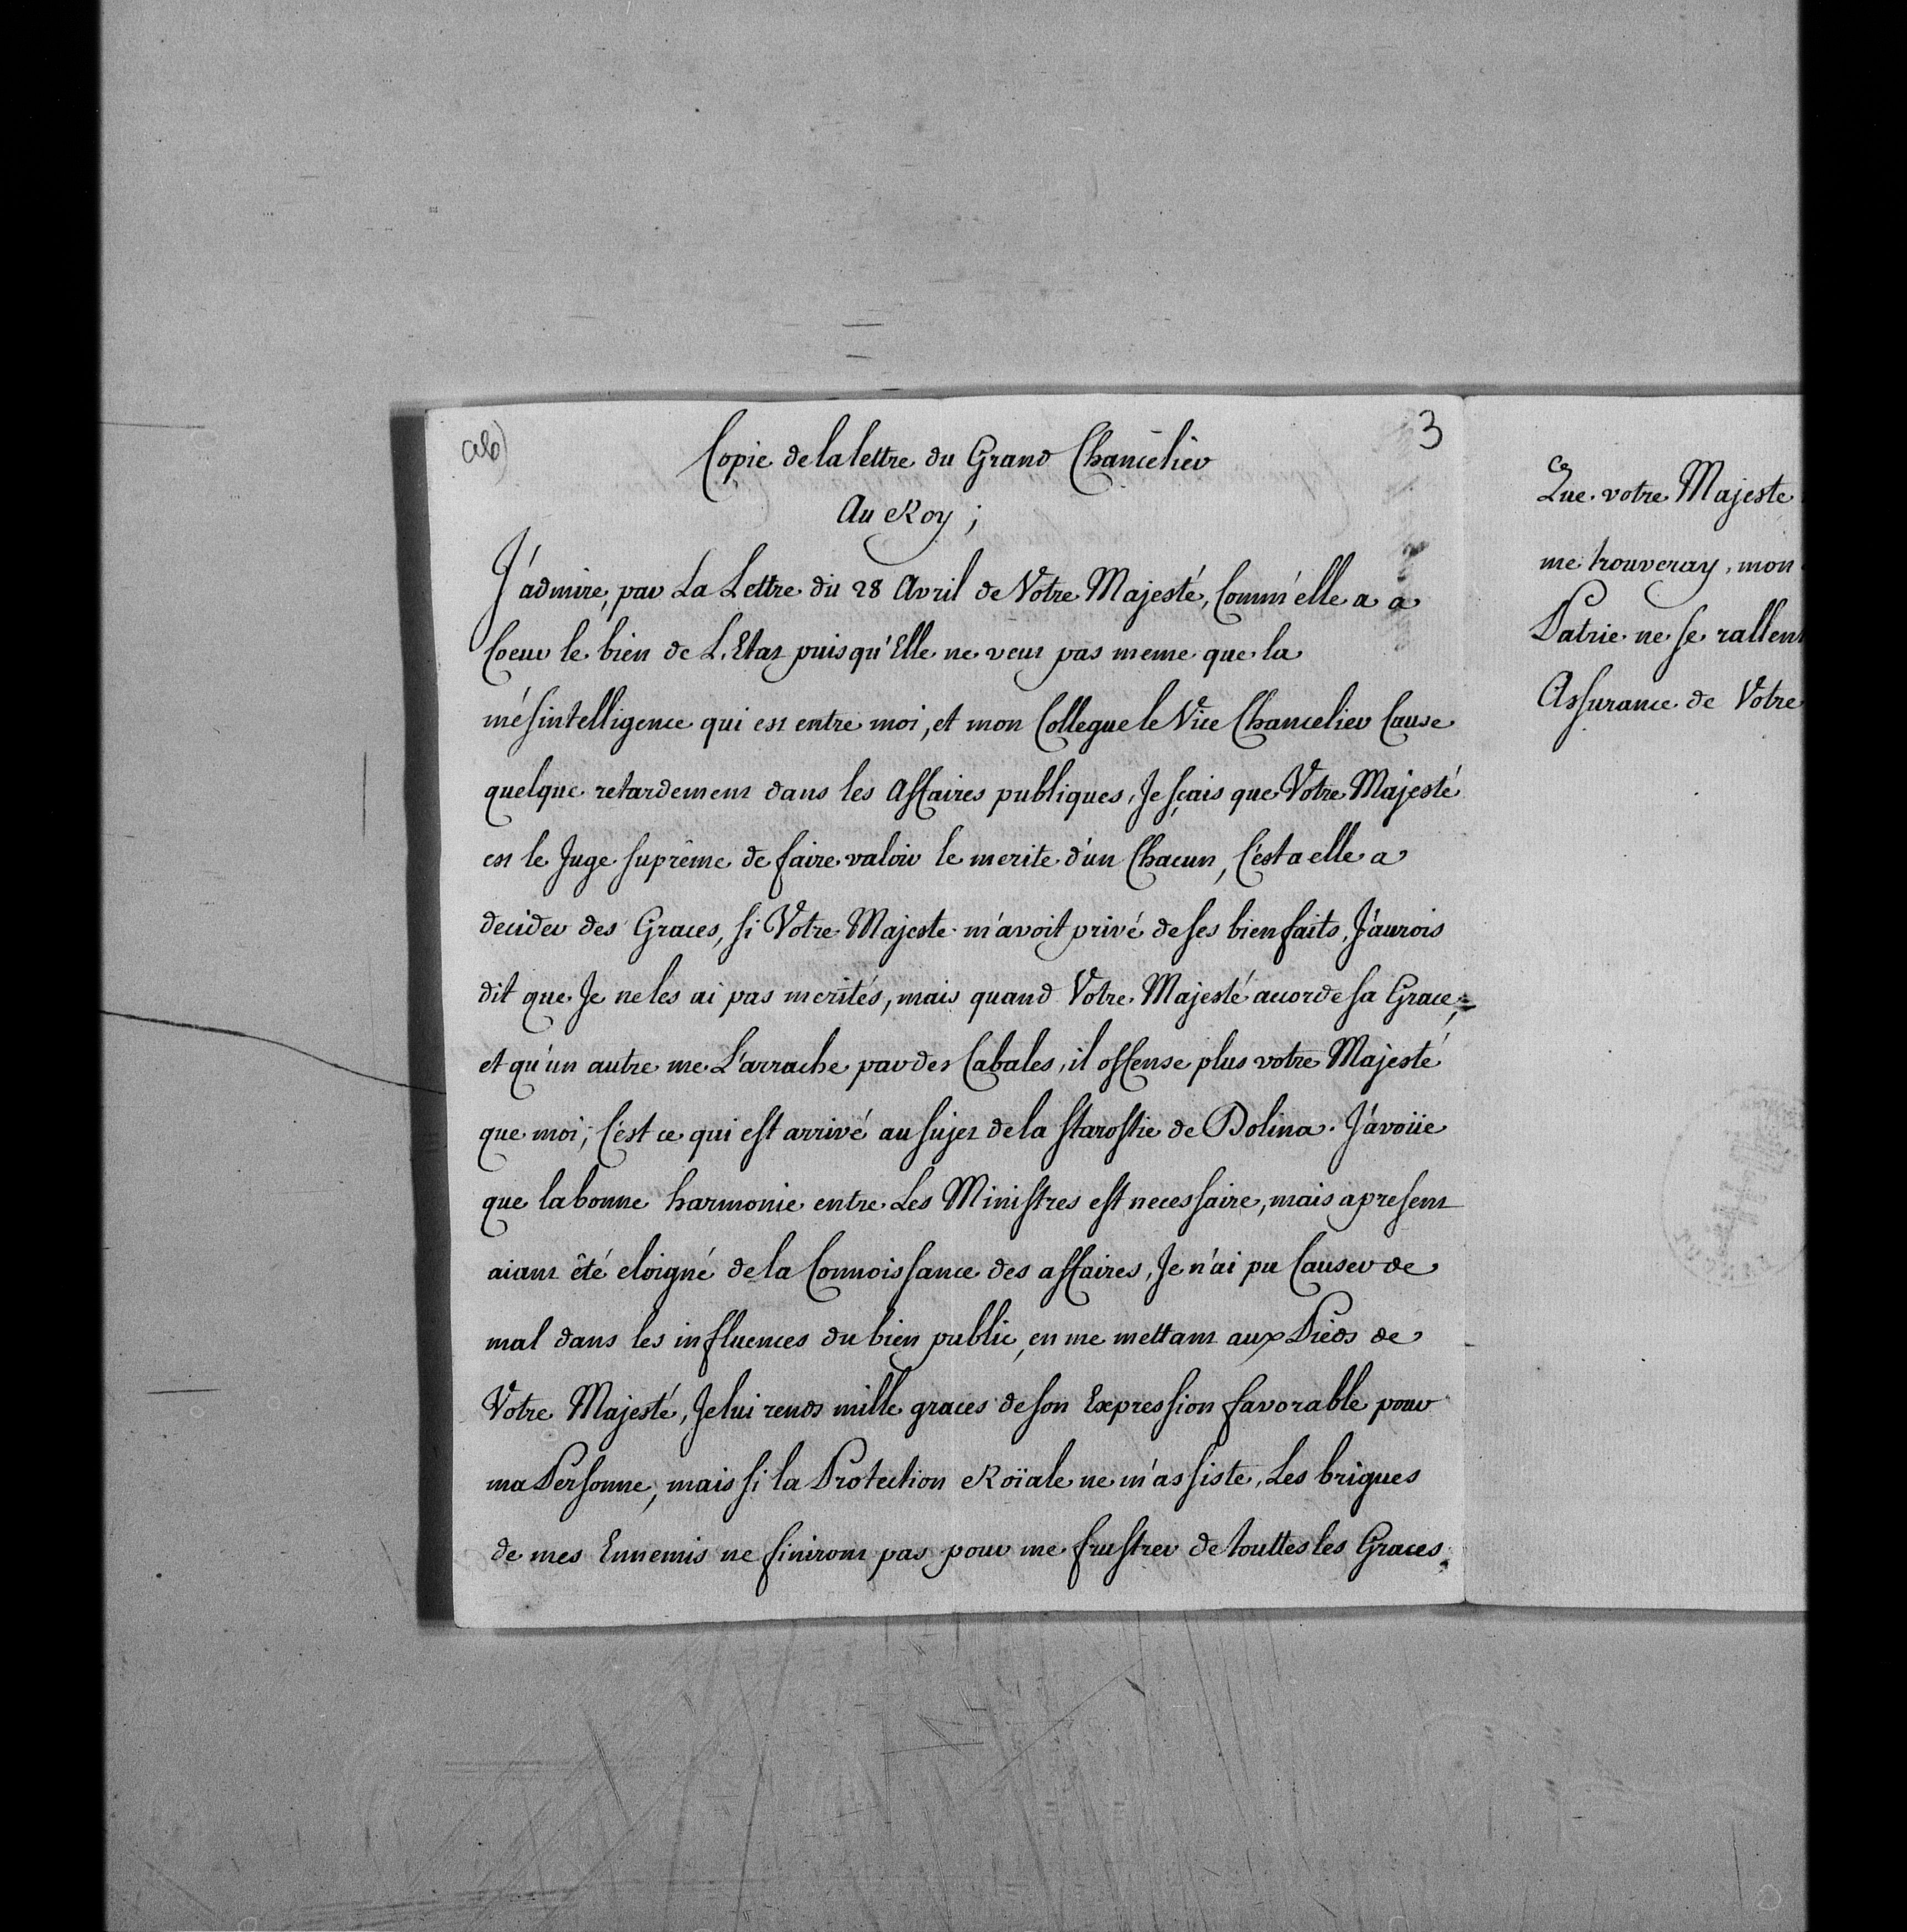 ab)
3
Copie de la lettre du Grand Chancelier
Au Roy ;
J'admire, par La Lettre du 28 Avril de Votre Majesté, Comm'elle a a
Coeur le bien de L'Etat puisqu'Elle ne veut pas meme que la
mésintelligence qui est entre moi, et mon Collegue le Vice Chancelier Cause
quelque retardement dans les Affaires publiques, Je sçais que Votre Majesté
est le Juge suprême de faire valoir le merite d'un Chacun, C'est a elle a
decider des Graces, si Votre Majeste m'avoit privé de ses bienfaits, J'aurois
dit que Je ne les ai pas merités, mais quand Votre Majesté accorde sa Grace,
et qu'un autre me L'arrache par des Cabales, il offense plus votre Majesté
que moi; C'est ce qui est arrivé au sujet de la starostie de Dolina. J'avoüe
que la bonne harmonie entre Les Ministres est necessaire, mais apresent
aiant êté eloigné de la Connoissance des affaires, Je n'ai pu Causer de
mal dans les influences du bien public, en me mettant aux Pieds de
Votre Majesté, Je lui rends mille graces de son Expression favorable pour
ma Personne, mais si la Protection Roïale ne m'assiste, Les brigues
de mes Ennemis ne finiront pas pour me frustrer de touttes les Graces.
Que votre Majeste
me trouveray, mon
Patrie ne se rallent
Assurance de Votre